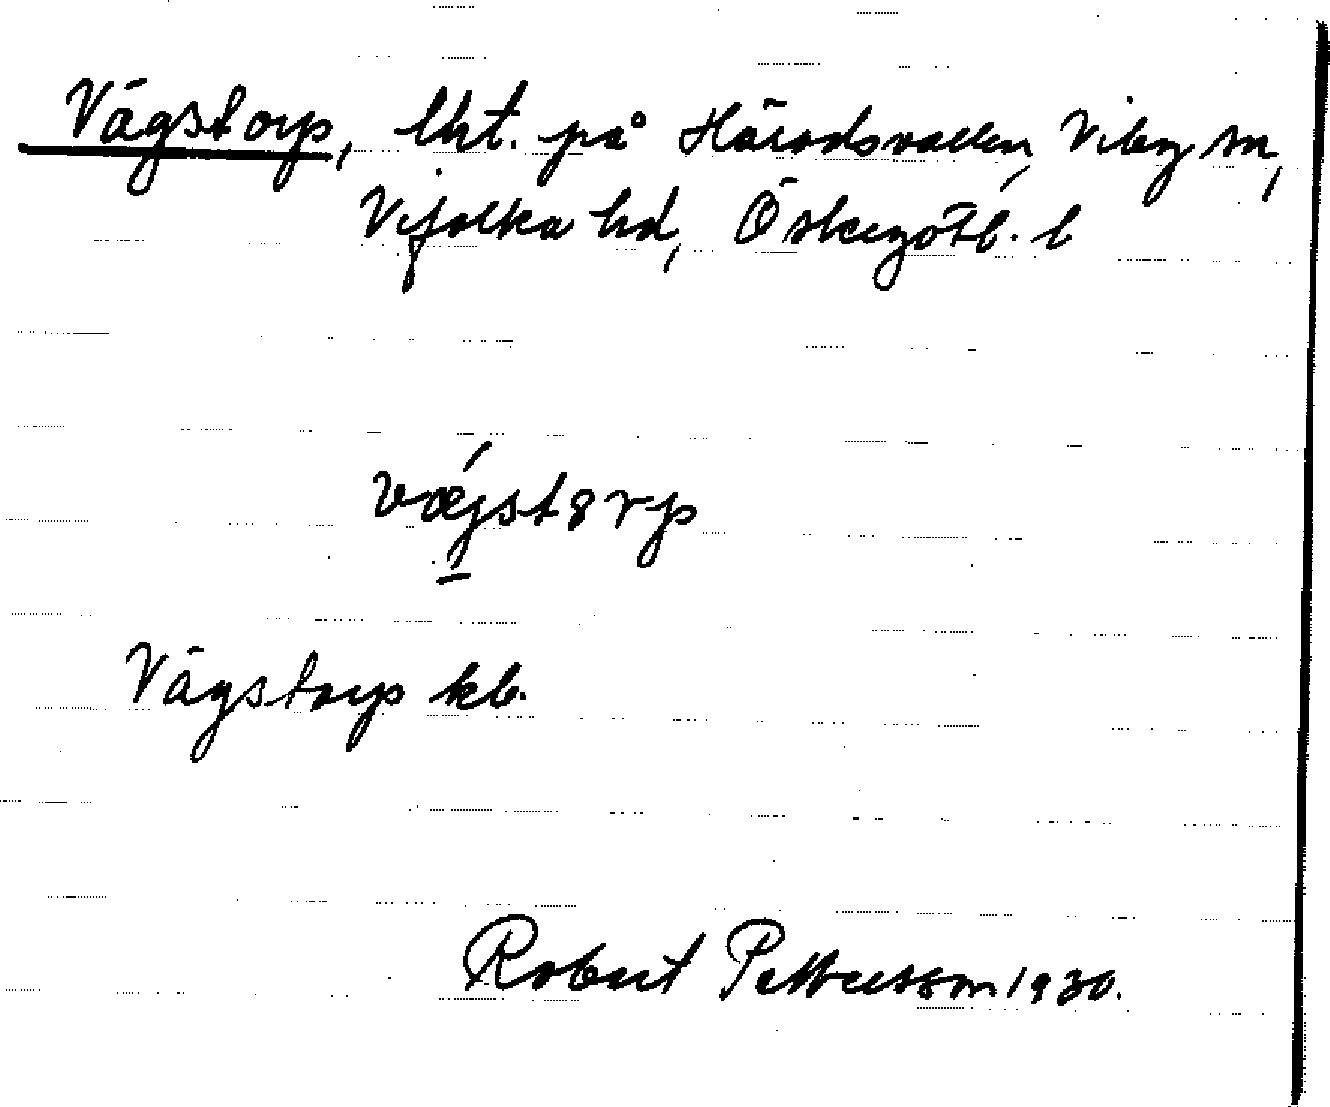 Vägstorp, lht. på Häradsvallen, Viby sn,
Vifolka hd, Östergötl. l
vǽjstɵrp
Vägstorp kb.
Robert Pettersson 1930.